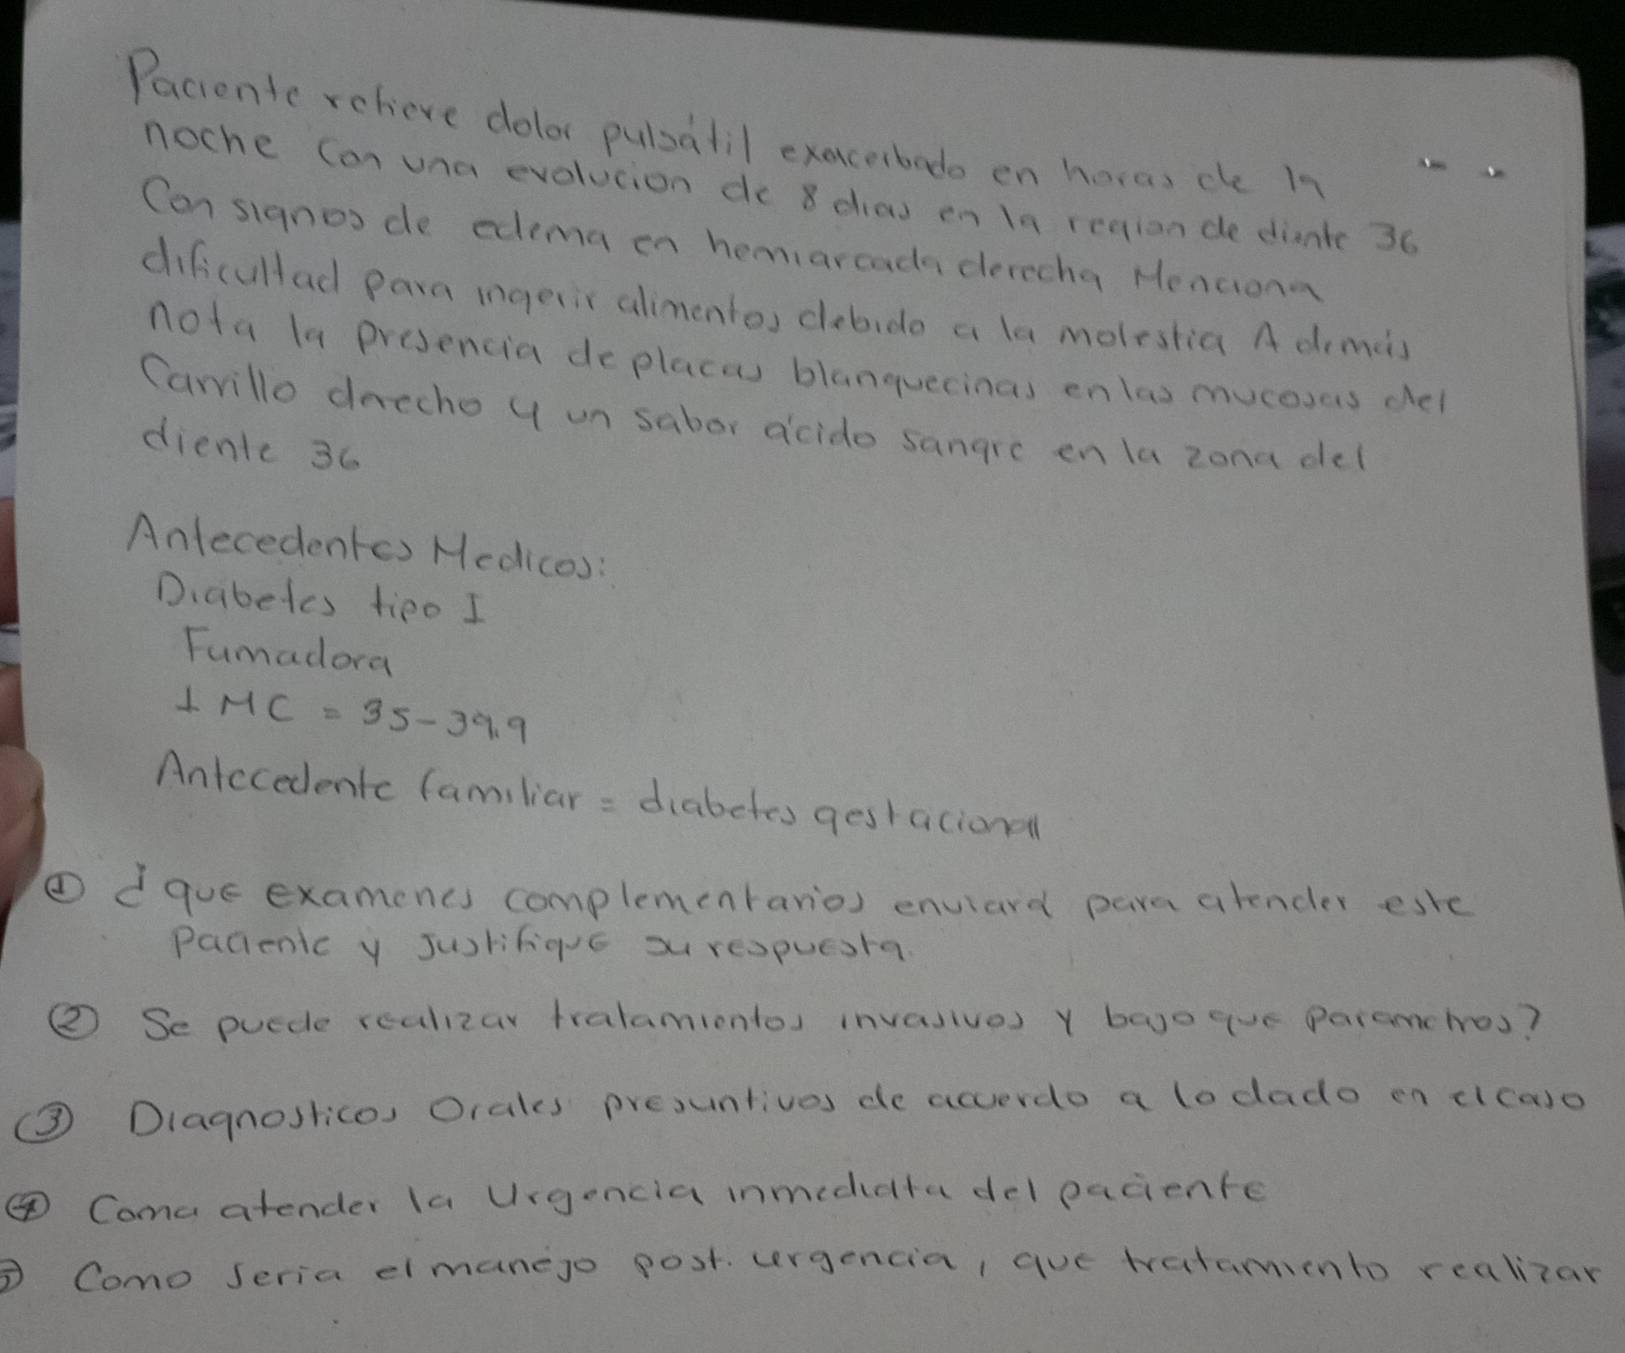 Paciente refiere dolor pulsátil exacerbado en horas de la
noche con una evolucion de 8 dias en la region de diente 36
Con signos de edema en hemiarcada derecha Menciona
dificultad para ingerir alimentos debido a la molestia Además
nota la presencia de placas blanquecinas en las mucosas del
Carrillo derecho y un sabor ácido sangre en la zona del
diente 36
Antecedentes Medicos:
Diabetes tipo I
Fumadora
IMC = 35-39.9
Antecedente familiar = diabetes gestacional
① ¿que examenes complementarios enviará para atender este
Paciente y Justifique su respuesta.
② Se puede realizar tratamientos invasivos y bajo que Parametros?
③ Diagnosticos Orales presuntivos de acuerdo a lo dado en el caso
④ Como atender la Urgencia inmediata del paciente
⑤ Como seria el manejo post. urgencia, que tratamiento realizar